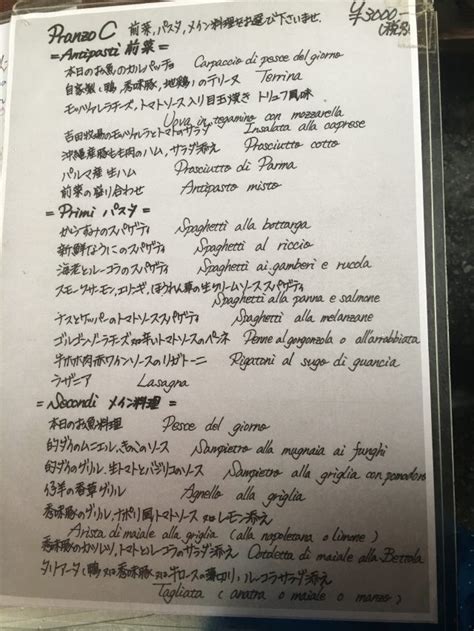 Pranzo C 前菜,パスタ,メイン料理をお選び下さいませ. ¥3000-
= Antipasti 前菜 =
本日のお魚のカルパッチョ Carpaccio di pesce del giorno
自家製(鴨,秀味豚,地鶏)のテリーヌ Terrina
モッツァレラチーズ,トマトソース入り目玉焼き トリュフ風味
Uova in tegamino con mozzarella
吉田牧場のモッツァレラとトマトのサラダ Insalata alla caprese
沖縄産豚もも肉のハム,サラダ添え Prosciutto cotto
パルマ産生ハム Prosciutto di Parma
前菜の盛り合わせ Antipasto misto
= Primi パスタ =
からすみのスパゲティ Spaghetti alla bottarga
新鮮なうにのスパゲティ Spaghetti al riccio
海老とルーコラのスパゲティ Spaghetti ai gamberi e rucola
スモークサーモン,エリンギ,ほうれん草の生クリームソーススパゲティ
Spaghetti alla panna e salmone
ナスとケッパーのトマトソーススパゲティ Spaghetti alla melanzane
ゴルゴンゾーラチーズ又は辛いトマトソースのペンネ Penne al gorgonzola o all'arrabbiata
牛ホホ肉赤ワインソースのリガトーニ Rigatoni al sugo di guancia
ラザニア Lasagna
= Secondi メイン料理 =
本日のお魚料理 Pesce del giorno
的ダイのムニエル,きのこのソース Sampietro alla mugnaia ai funghi
的ダイのグリル,生トマトとバジリコのソース Sampietro alla griglia con pomodoro
仔羊の香草グリル Agnello alla griglia
秀味豚のグリル,ナポリ風トマトソース 又はレモン添え
Arista di maiale alla griglia (alla napoletana o limone)
秀味豚のカツレツ,トマトとルーコラのサラダ添え Cotoletta di maiale alla Bettola
タリアータ(鴨 又は 秀味豚 又は 牛ロースの薄切り),ルーコラサラダ添え
Tagliata (anatra o maiale o manzo)